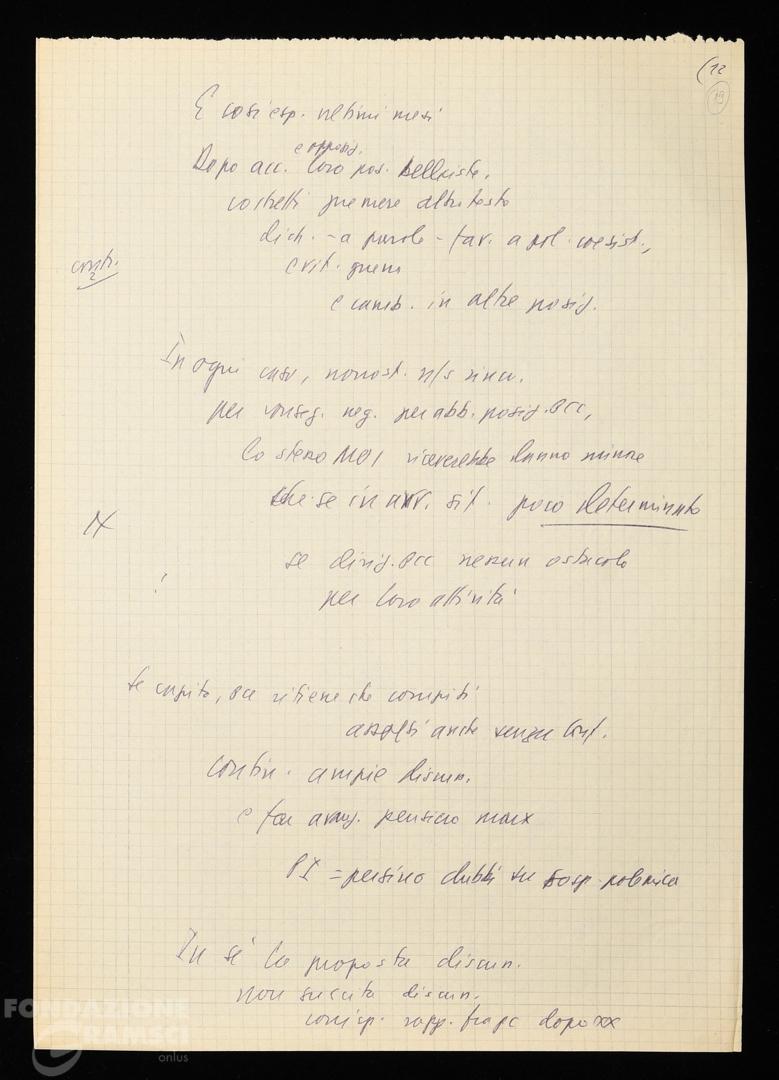 (12
19
E così esp. ultimi mesi
e opposiz.
Dopo acc. loro pos. belliciste,
costretti premere altro tasto
dich. - a parole - fav. a pol. coesist.,
contr.
2
crit. guerra
e camb. in altre posiz.
In ogni caso, nonost. n/s rinc.
per conseg. neg. per abb. posiz. PCC,
lo stesso MOI riceverebbe danno minore
che se in avv. sit. poco determinato
se dirig. PCC nessun ostacolo
!
per loro attività
Se capito, PCC ritiene che compiti
assolti anche senza Conf.
contin. ampie discuss.
e far avanz. pensiero marx
PI = persino dubbi su sosp. polemica
In sé la proposta discuss.
non suscita discuss.
corrisp. rapp. fra PC dopo XX
FONDAZIONE
GRAMSCI
onlus